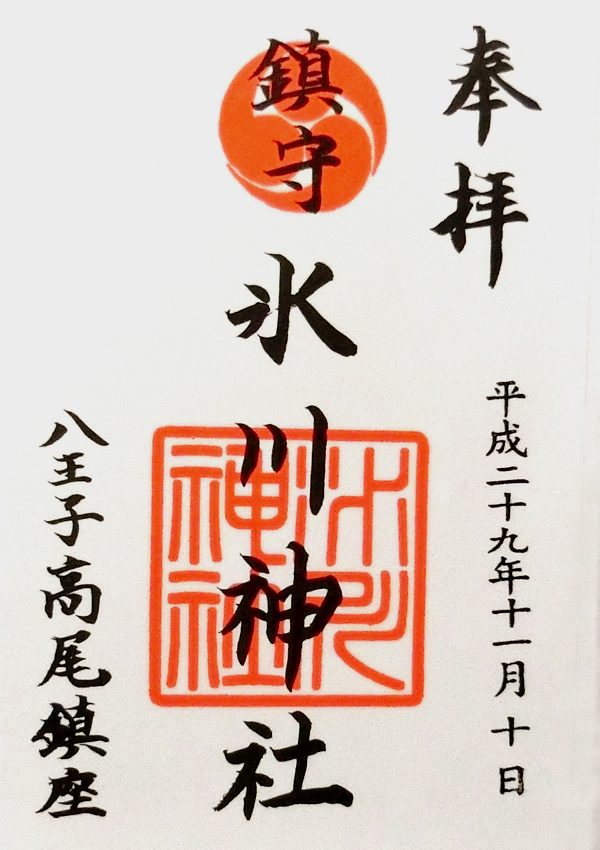 奉拝
平成二十九年十一月十日
鎮守
氷川神社
氷川神社
八王子高尾鎮座